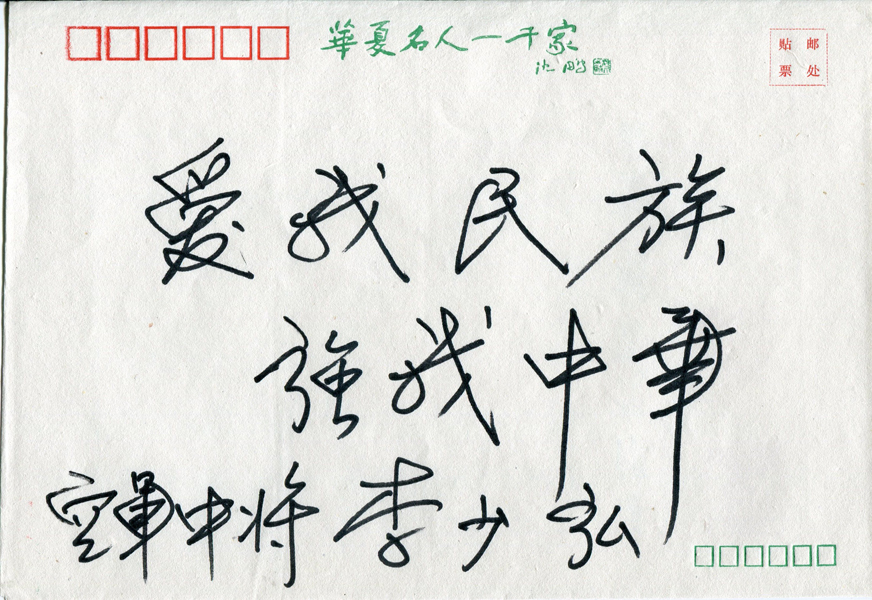 華夏名人一千家
沈鹏
贴 邮
票 处
愛我民族
強我中華
空軍中将 李少弘